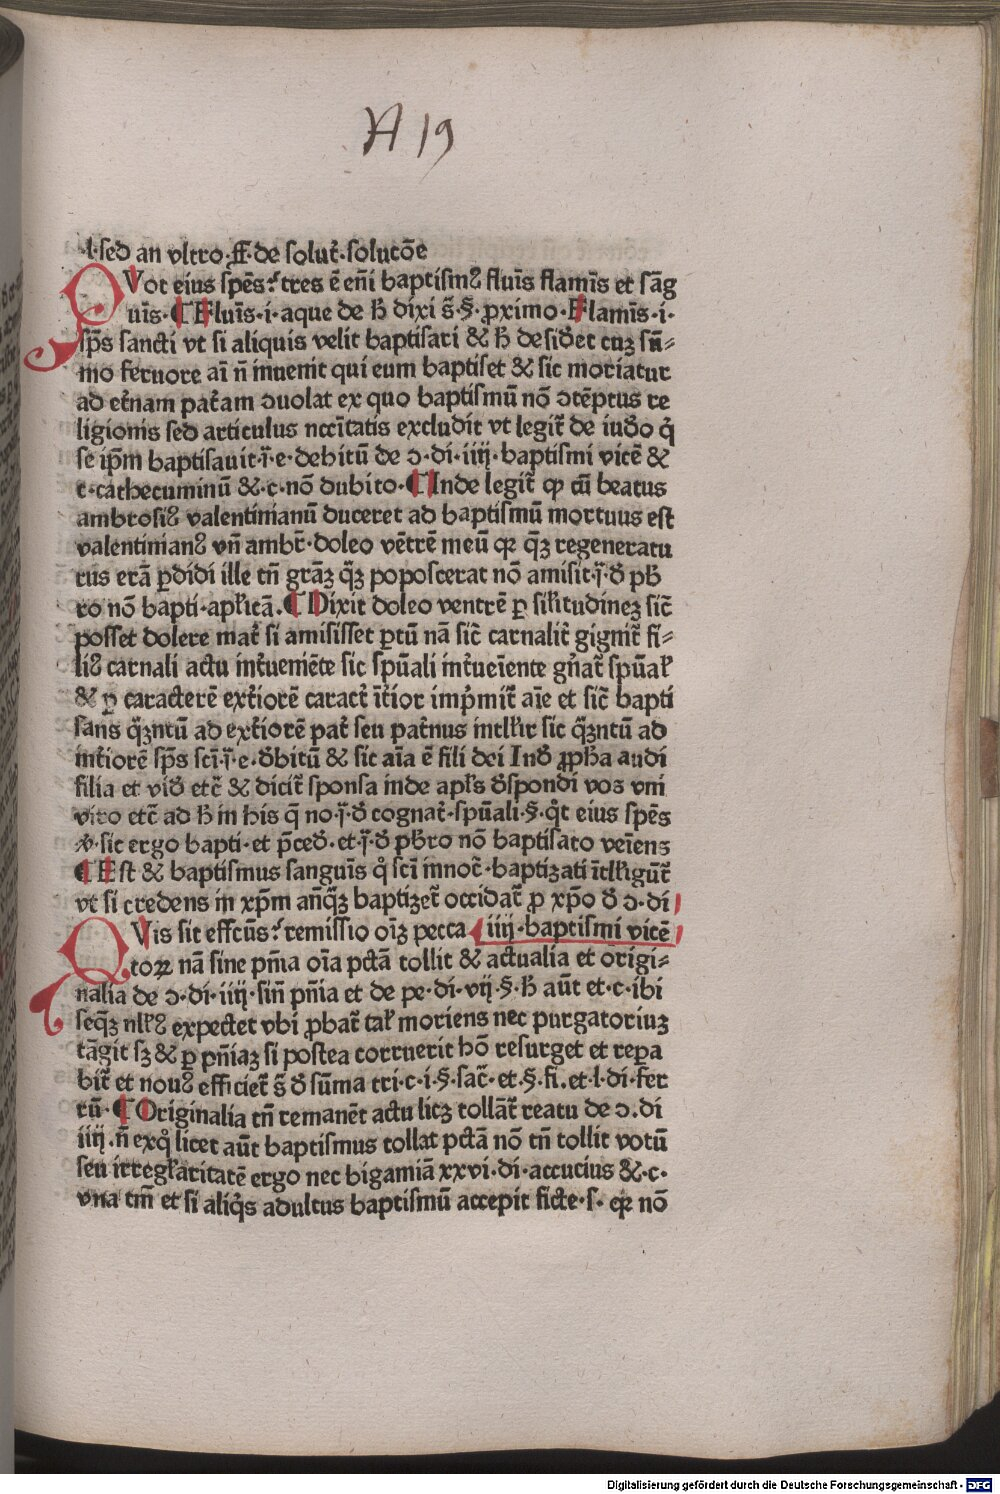 A 19
·l·sed an vltro·ff·de solut̃·solucõe
QVot eius spẽs? tres ẽ eñi baptismꝰ fluĩs flamĩs et sãg
uĩs·¶Fluĩs·i·aque de ħ dixi s̃·§·ꝓximo·Flamĩs·i·
sp̃s sancti vt si aliquis velit baptisari & ħ desiđet cuʒ sũ⸗
mo feruore aĩ ñ inuenit qui eum baptiset & sic moriatur
ad et̃nam pat̃am ↄuolat ex quo baptismũ nõ ↄtẽptus re
ligionis sed articulus nccĩtatis excludit vt legit̃ de iuđo q̉
se ip̃m baptisauit·ĩ·e·debitũ de ↄ·di·iiij·baptismi vicẽ &
c·cathecuminũ &·c·nõ dubito·¶Inde legit̃ ꝙ cũ beatus
ambrosiꝰ valentinianũ duceret ad baptismũ mortuus est
valentinianꝰ vñ ambr̃·doleo vẽtrẽ meũ qꝛ q̃ʒ regeneratu
rus erã ꝑdidi ille tñ grãʒ q̃ʒ poposcerat nõ amisit·ĩ·đ pb̃
ro nõ bapti·apl̃icã.¶Dixit doleo ventrẽ ꝑ sil̃itudineʒ sic̃
posset dolere mat̃ si amisisset ꝑtũ nã sic̃ carnalit̃ gignit̃ fi⸗
liꝰ carnali actu int̃ueniẽte sic spũali int̃ueĩente gñat̃ spũal̃
& ꝑ caracterẽ ext̃iorẽ caract̃ ĩt̃ior imp̃mit̃ aĩe et sic̃ bapti
sans q̃ʒntũ ad ext̃iorẽ pat̃ seu pat̃nus intll̃ir sic q̃ʒntũ ad
int̃iorẽ sp̃s sc̃i·ĩ·e·đbitũ & sic aĩa ẽ fili dei Inđ ꝓpħa audi
filia et viđ etc̃ & dicit̃ sponsa inde apl̃s đspondi vos vni
viro etc̃ ad ħ in his q̃ no·ĩ·đ cognat̃·spũali·§·q̉t eius spẽs
℣·sic ergo bapti·et p̃ceđ·et·ĩ·đ pb̃ro nõ baptisato veĩens
¶Est & baptismus sanguĩs q̉ sc̃i innoc̃·baptizati ĩtll̃igũt̃
vt si credens in xp̃m añq̃ʒ baptizet̃ occidat̃ ꝓ xp̃o đ ↄ·di
QVis sit effcũs? remissio oĩʒ pecca iiij·baptismi vicẽ
toꝝ nã sine pñia oĩa pctã tollit & actualia et origi⸗
nalia de ↄ·di·iiij·sin̄ pñia et de pe·di·vij·§·ħ aũt et·c·ibi
seq̃ʒ nll̃ꝰ expectet vbi ꝓbat̃ tal̃ moriens nec purgatoriuʒ
tãgit sʒ & ꝑ pñiaʒ si postea corruerit hõ resurget et repa
bit̃ et nouꝰ efficiet̃ s̃ đ sũma tri·c·i·§·sac̃·et·§·fi.et·l·di·fer
rũ·¶Originalia tñ remanẽt actu licʒ tollãt̃ reatu de ↄ.di
iiij.ñ exq̉ licet aũt baptismus tollat pctã nõ tñ tollit votũ
seu irregl̃aritatẽ ergo nec bigamiã xxvi·di·accucius &·c·
vna tm̃ et si aliq̉s adultus baptismũ accepit ficte·s·qꝛ nõ
Digitalisierung gefördert durch die Deutsche Forschungsgemeinschaft - DFG